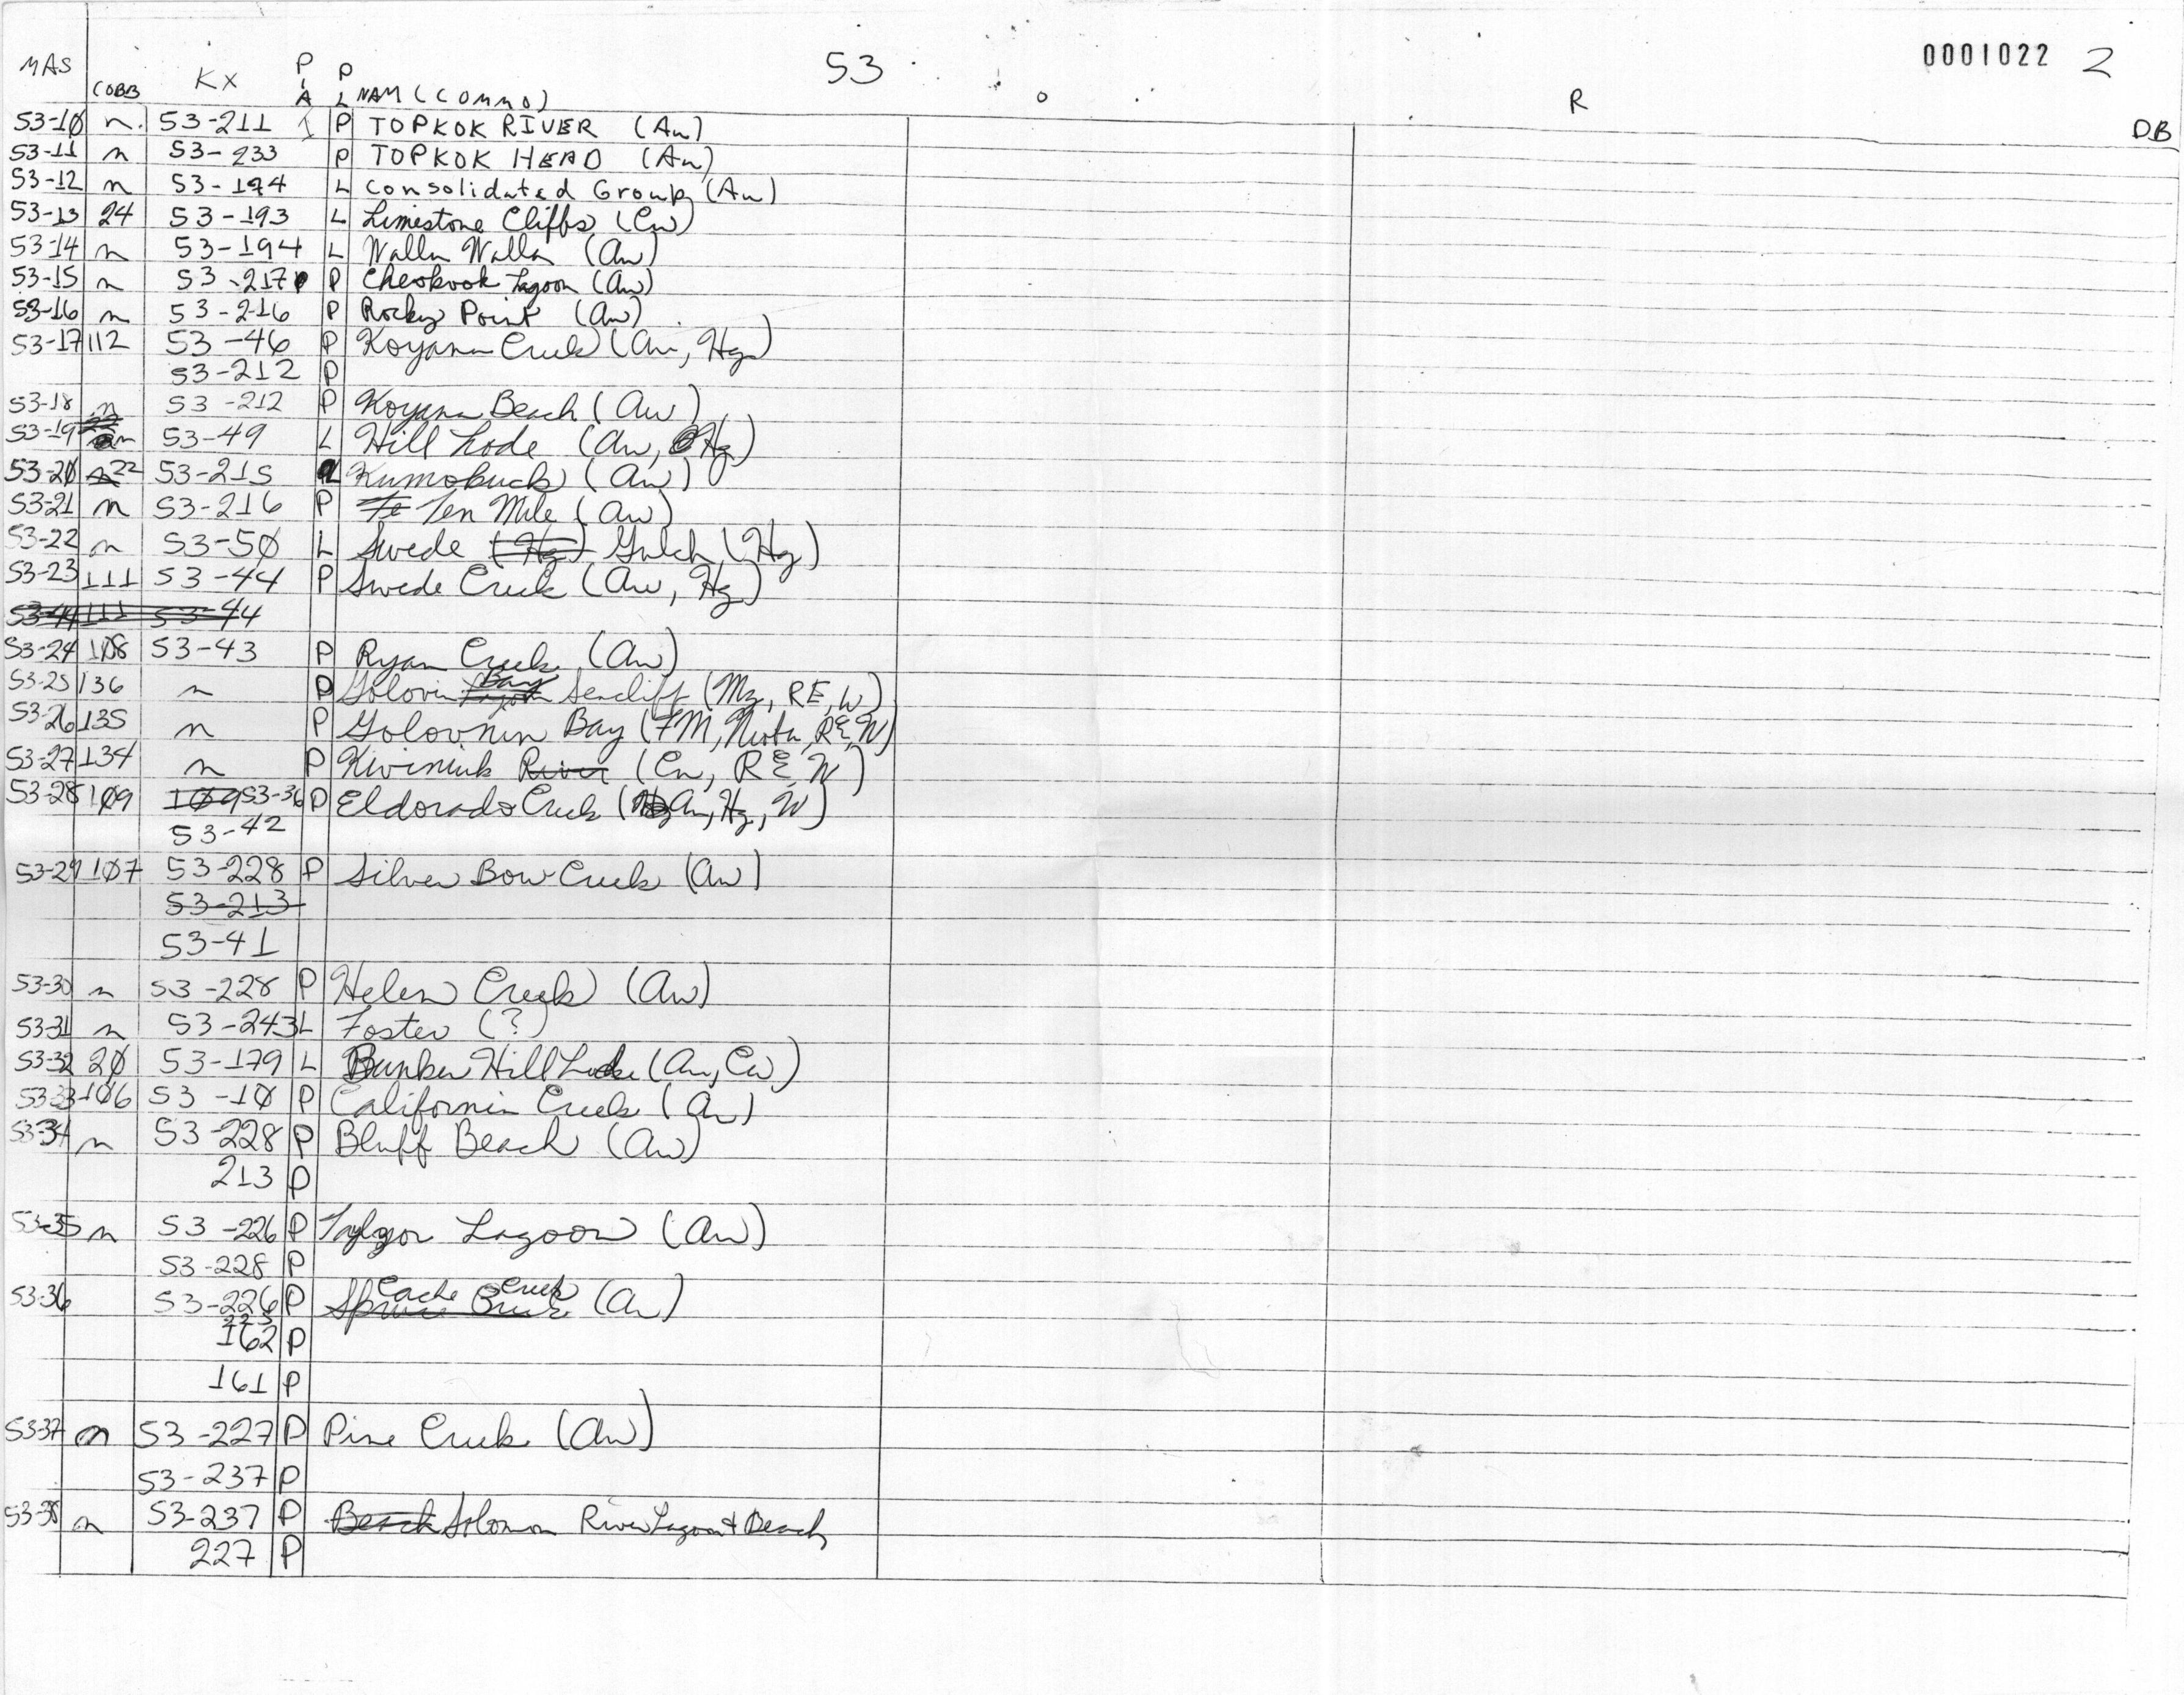 53
0001022 2
MAS COBB KX P L A P L NAM (COMMO) O R DB
53-10 n. 53-211 I P TOPKOK RIVER (Au)
53-11 n 53-233 P TOPKOK HEAD (Au)
53-12 n 53-194 L Consolidated Group (Au)
53-13 24 53-193 L Limestone Cliffs (Cu)
53-14 n 53-194 L Walla Walla (Au)
53-15 n 53-217 P Lagoon (Au)
53-16 n 53-216 P Rocky Point (Au)
53-17 112 53-46 P Koyana Creek (Au, Hg)
53-212 P
53-18 n 53-212 P Koyana Beach (Au)
53-19 n 53-49 L Hill Lode (Au, Hg)
53-20 22 53-215 L Kumobuck (Au)
53-21 n 53-216 P Ten Mile (Au)
53-22 n 53-50 L Swede (Hg) Gulch (Hg)
53-23 111 53-44 P Swede Creek (Au, Hg)
53-44 111 53-44
53-24 108 53-43 P Ryan Creek (Au)
53-25 136 n P Golovin Bay Seacliff (Mz, RE, W)
53-26 135 n P Golovnin Bay (FM, RE, W)
53-27 134 n P Kwiniuk River (Cu, RE, W)
53-28 109 109 53-36 P Eldorado Creek (Au, Hg, W)
53-42
53-29 107 53-228 P Silver Bow Creek (Au)
53-213
53-41
53-30 n 53-228 P Helen Creek (Au)
53-31 n 53-243 L Foster (?)
53-32 20 53-179 L Bunker Hill Lode (Au, Cu)
53-33 106 53-10 P California Creek (Au)
53-34 n 53-228 P Bluff Beach (Au)
213 P
53-35 n 53-226 P Taylor Lagoon (Au)
53-228 P
Cache Creek
53-36 53-226 P Spruce Creek (Au)
223
162 P
161 P
53-37 n 53-227 P Pine Creek (Au)
53-237 P
53-38 n 53-237 P Beach Solomon River Lagoon & Beach
227 P